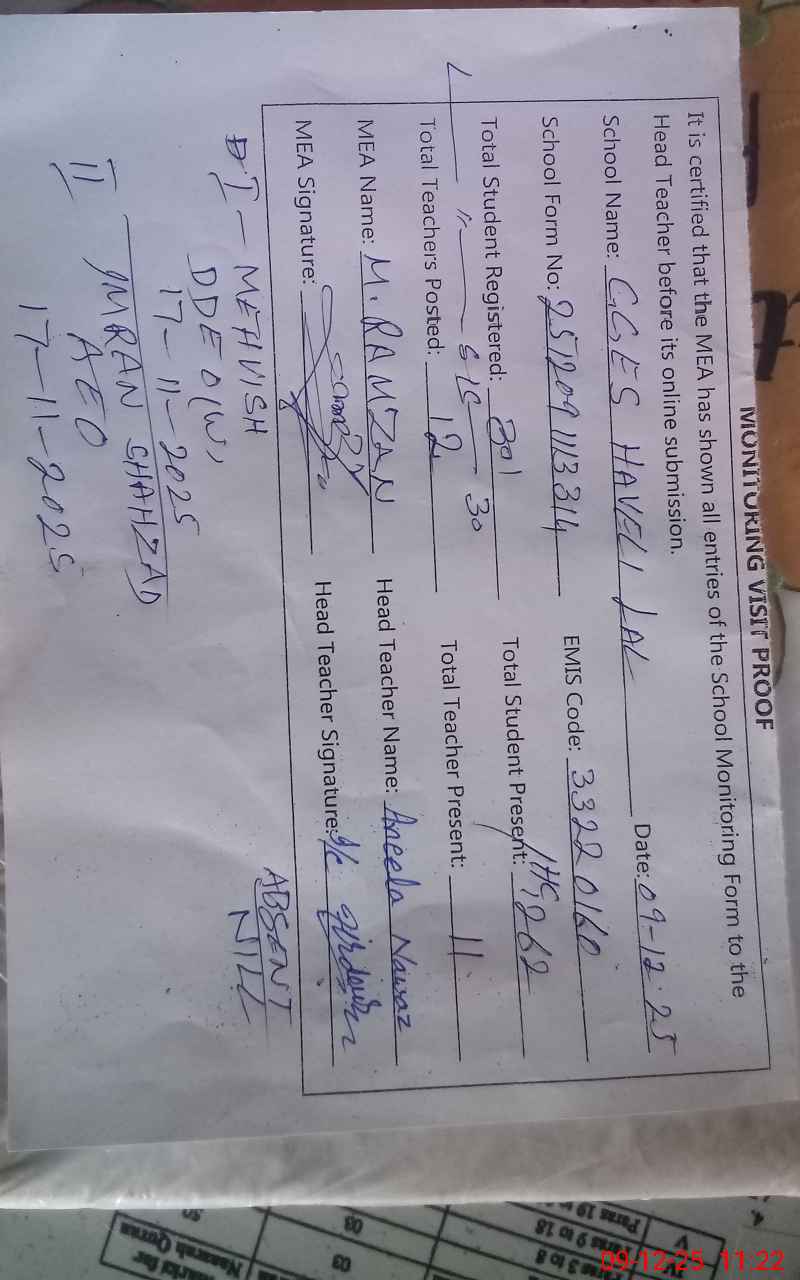 MONITORING VISIT PROOF
It is certified that the MEA has shown all entries of the School Monitoring Form to the
Head Teacher before its online submission.
School Name: GGES HAVELI LAL Date: 09-12-25
School Form No: 2512091113314 EMIS Code: 33220160
Total Student Registered: 301 Total Student Present: 262
30
Total Teachers Posted: 12 Total Teacher Present: 11
MEA Name: M. RAMZAN Head Teacher Name: Aneela Nawaz
MEA Signature: Head Teacher Signature: I/c
I - MEHVISH
DDEO(W,
17-11-2025
II IMRAN SHAHZAD
AEO
17-11-2025
ABSENT
NILL
09-12-25 11:22